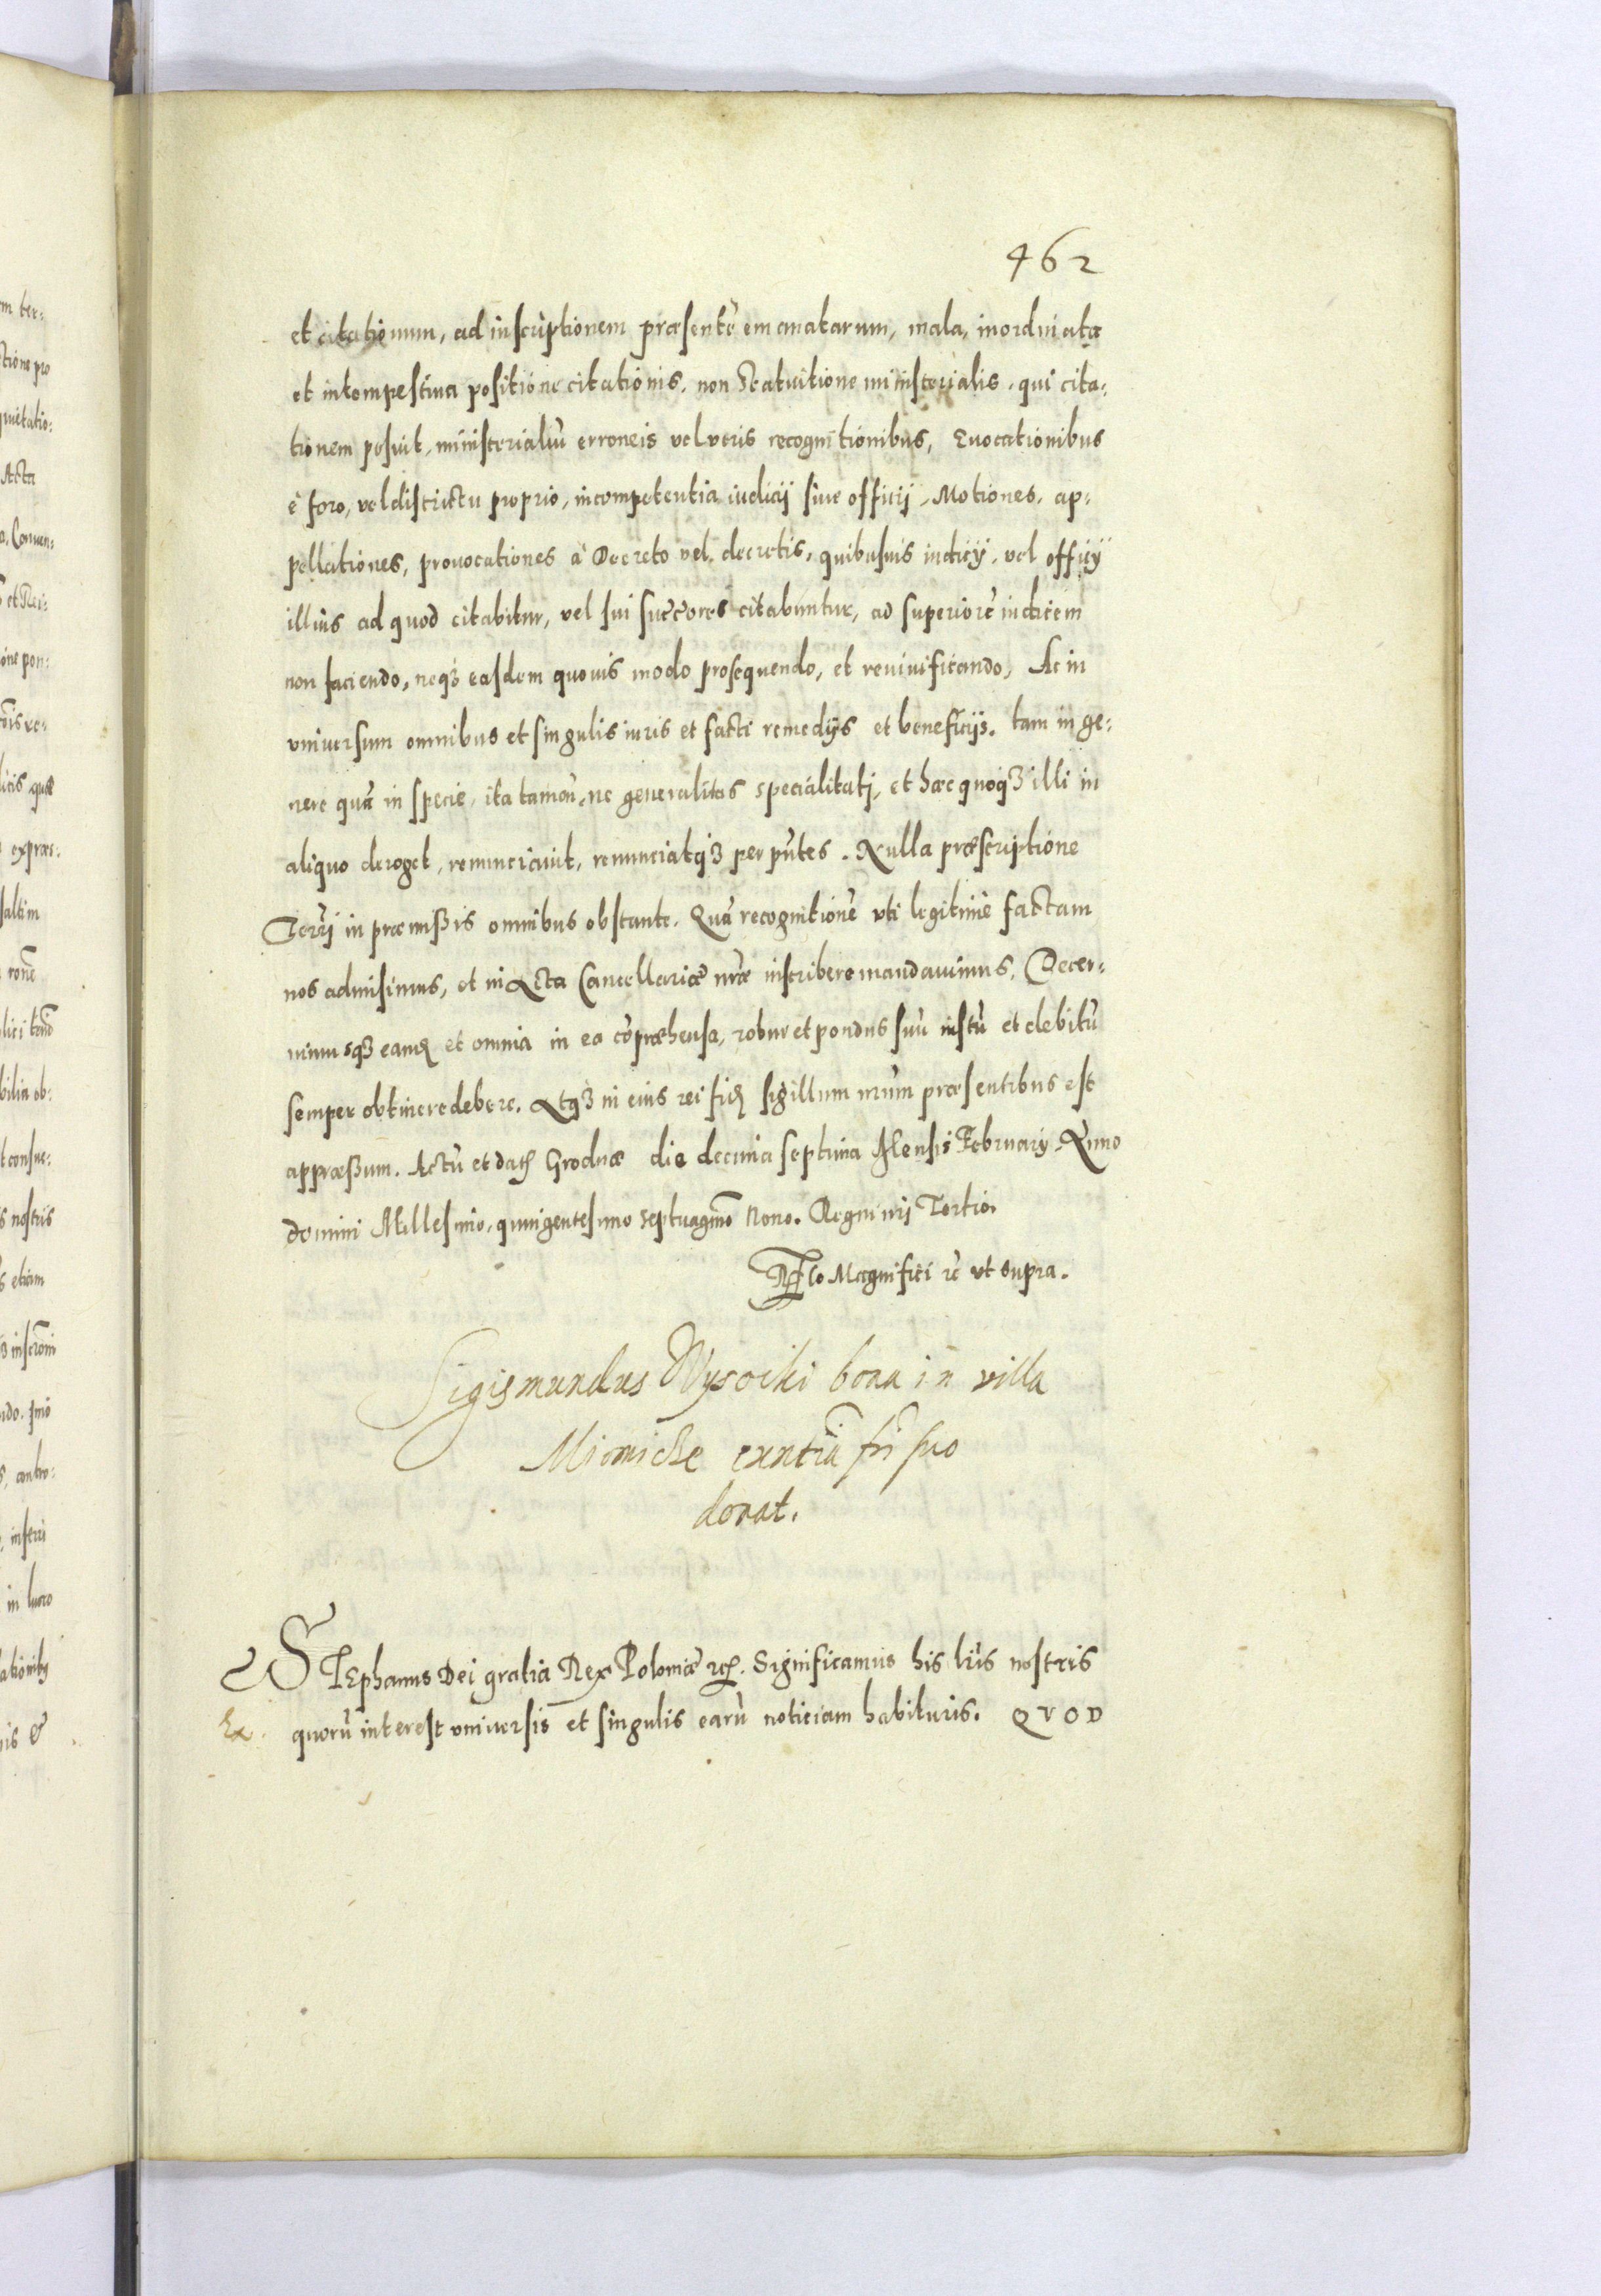 462
et citationum, ad inscriptionem præsentẽ emanatarum, mala, inordinata
et intempestiva positione citationis, non Statuitione ministerialis, qui cita-
tionem posuit, ministerialiũ erroneis vel veris recognitionibus, Evocationibus
è foro, vel districtu proprio, incompetentia iudicij sive officij, Motiones, ap-
pellationes, provocationes à Decreto vel decretis, quibusuis iudicij, vel officij
illius ad quod citabitur, vel sui succores citabuntur, ad superiorẽ iudicem
non faciendo, neqꝫ easdem quovis modo prosequendo, et reviuificando, Ac in
vniuersum omnibus et singulis iuris et facti remedijs et beneficijs, tam in ge-
nere quã in specie, ita tamen, ne generalitas specialitati, et hæc quoqꝫ illi in
aliquo deroget, renunciauit, renunciatqꝫ per pñtes. Nulla præscriptione
Terrj in præmißis omnibus obstante. Quã recognitionẽ vti legitimè factam
nos admisimus, et in Acta Cancellariæ nr̃æ inscribere mandauimus, Decer-
nimusqꝫ eand et omnia in ea cõpræhensa, robur et pondus suũ iustũ et debitũ
semper obtinere debere. Atqꝫ in eius rei fid sigillum nr̃um præsentibus est
appræßum. Actũ et dat Grodnæ die decima septima Mensis February Anno
domini Millesimo, quingentesimo septuagmo Nono. Regni nr̃j Tertio.
Rẽlo Magnifici ꝛc vt supra.
Sigismundus Wysocki bona in villa
exn̄tia fr̃i suo
donat.
STEphanus Dei gratia Rex Poloniæ ꝛcꝭ. Significamus his lr̃is nostris
Ex. quorũ interest vniuersis et singulis earũ noticiam habituris. QVOD